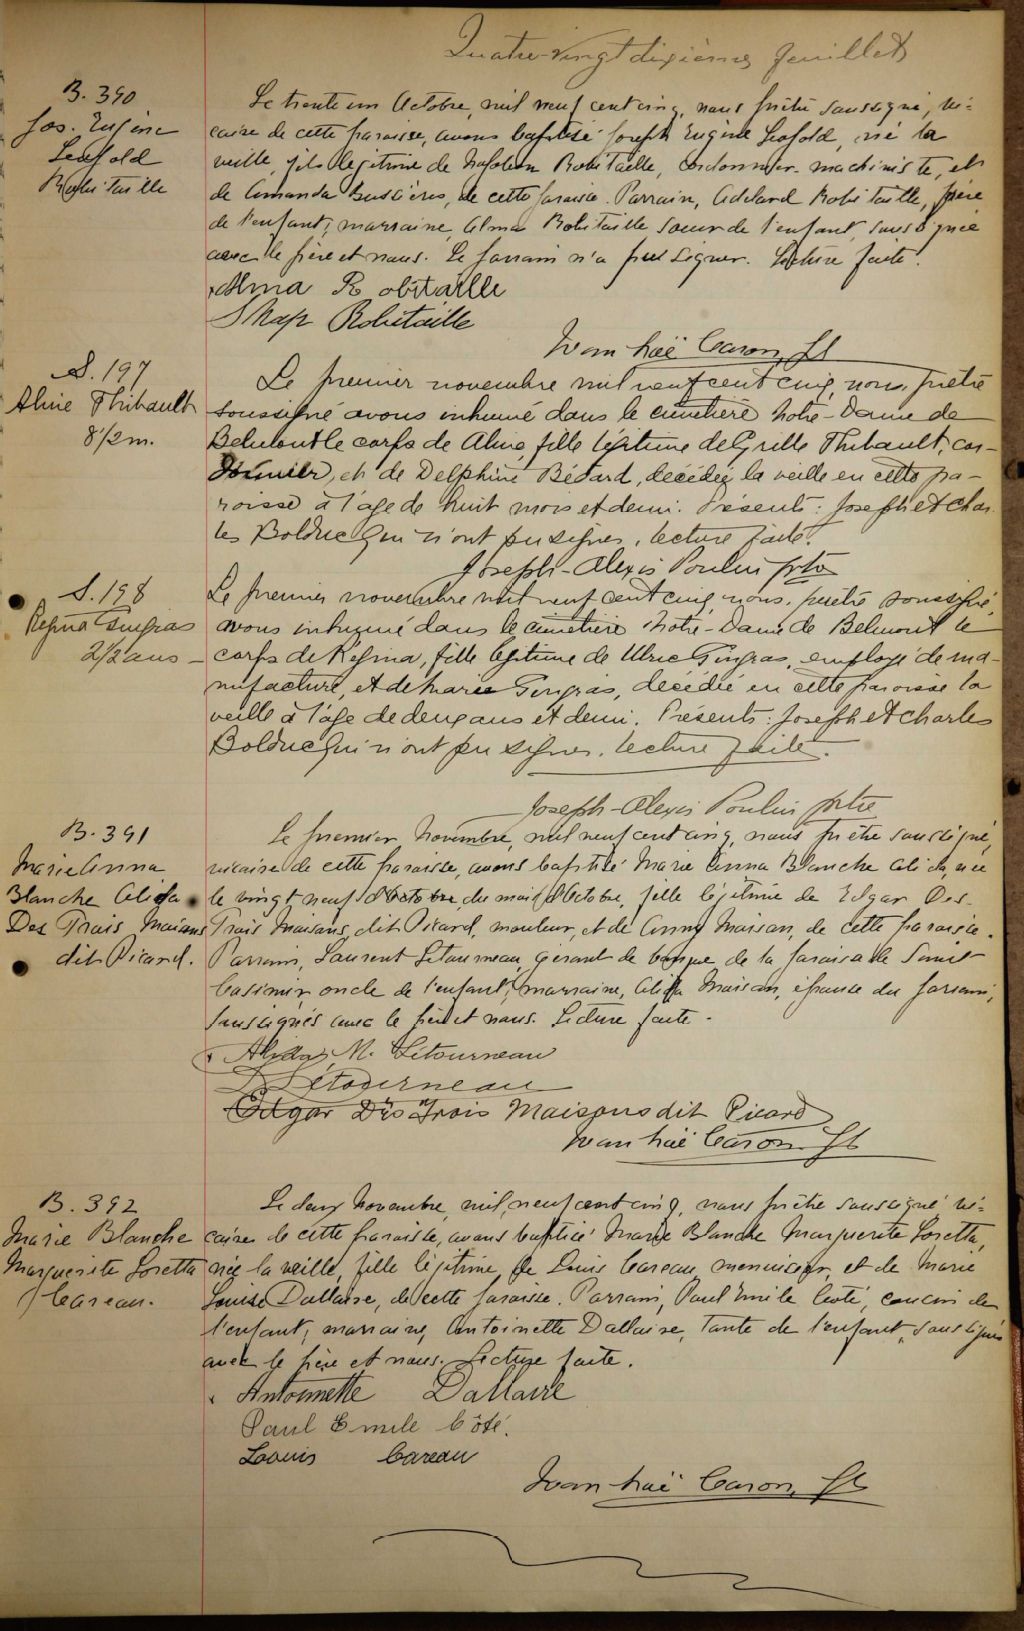 Quatre-vingt dixième feuillet
B. 390
Jos. Eugène
Léopold
Robitaille
Le trente un Octobre, mil neuf cent cinq, nous prêtre soussigné, vi=
caire de cette paroisse, avons baptisé Joseph Eugène Léopold, né la
veille, fils légitime de Napoléon Robitaille, cordonnier-machiniste, et
de Amanda Bussières, de cette paroisse. Parrain, Adélard Robitaille, frère
de l'enfant; marraine, Alma Robitaille soeur de l'enfant, soussignée
avec le père et nous. Le parrain n'a pu signer. Lecture faite.
Alma Robitaille
Nap Robitaille
Ivanhoë Caron, Pt
S. 197
Aline Thibault
8 1/2 m.
Le premier novembre mil neuf cent cinq, nous, prêtre
soussigné avons inhumé dans le cimetière Notre-Dame de
Belmont le corps de Aline, fille légitime de Cyrille Thibault, cor-
donnier, et de Delphine Bédard, décédée la veille en cette pa-
roisse à l'âge de huit mois et demi. Présents: Joseph et Char
les Bolduc qui n'ont pu signer. Lecture faite.
Joseph-Alexis Poulin ptre
S. 198
Régina Gingras
2 1/2 ans -
Le premier novembre mil neuf cent cinq, nous, prêtre soussigné,
avons inhumé dans le cimetière Notre-Dame de Belmont le
corps de Régina, fille légitime de Ulric Gingras, employé de ma-
nufacture, et de Marie Gingras, décédée en cette paroisse la
veille à l'âge de deux ans et demi. Présents: Joseph et Charles
Bolduc qui n'ont pu signer. Lecture faite.
Joseph-Alexis Poulin ptre
B. 391
Marie Anna
Blanche Alida
Des Trois Maisons
dit Picard.
Le premier Novembre, mil neuf cent cinq, nous prêtre soussigné,
vicaire de cette paroisse, avons baptisé Marie Anna Blanche Alida, née
le vingt neuf d'Octobre, du mois d'Octobre, fille légitime de Edgar Des-
Trois Maisons, dit Picard, mouleur, et de Anny Maison, de cette paroisse.
Parrain, Laurent Létourneau, gérant de banque de la paroisse de Saint
Casimir, oncle de l'enfant; marraine, Alida Maison, épouse du parrain,
soussignés avec le père et nous. Lecture faite.
Alida M. Létourneau
L Létourneau
Edgar Des Trois Maisons dit Picard
Ivanhoë Caron, Pt
B. 392
Marie Blanche
Marguerite Loretta
Careau.
Le deux Novembre, mil neuf cent cinq, nous prêtre soussigné vi=
caire de cette paroisse, avons baptisé Marie Blanche Marguerite Loretta,
née la veille, fille légitime de Louis Careau, menuisier, et de Marie
Louise Dallaire, de cette paroisse. Parrain, Paul Emile Coté, cousin de
l'enfant; marraine, Antoinette Dallaire, tante de l'enfant, soussignés
avec le père et nous. Lecture faite.
Antoinette Dallaire
Paul Emile Côté.
Louis Careau
Ivanhoë Caron, Pt